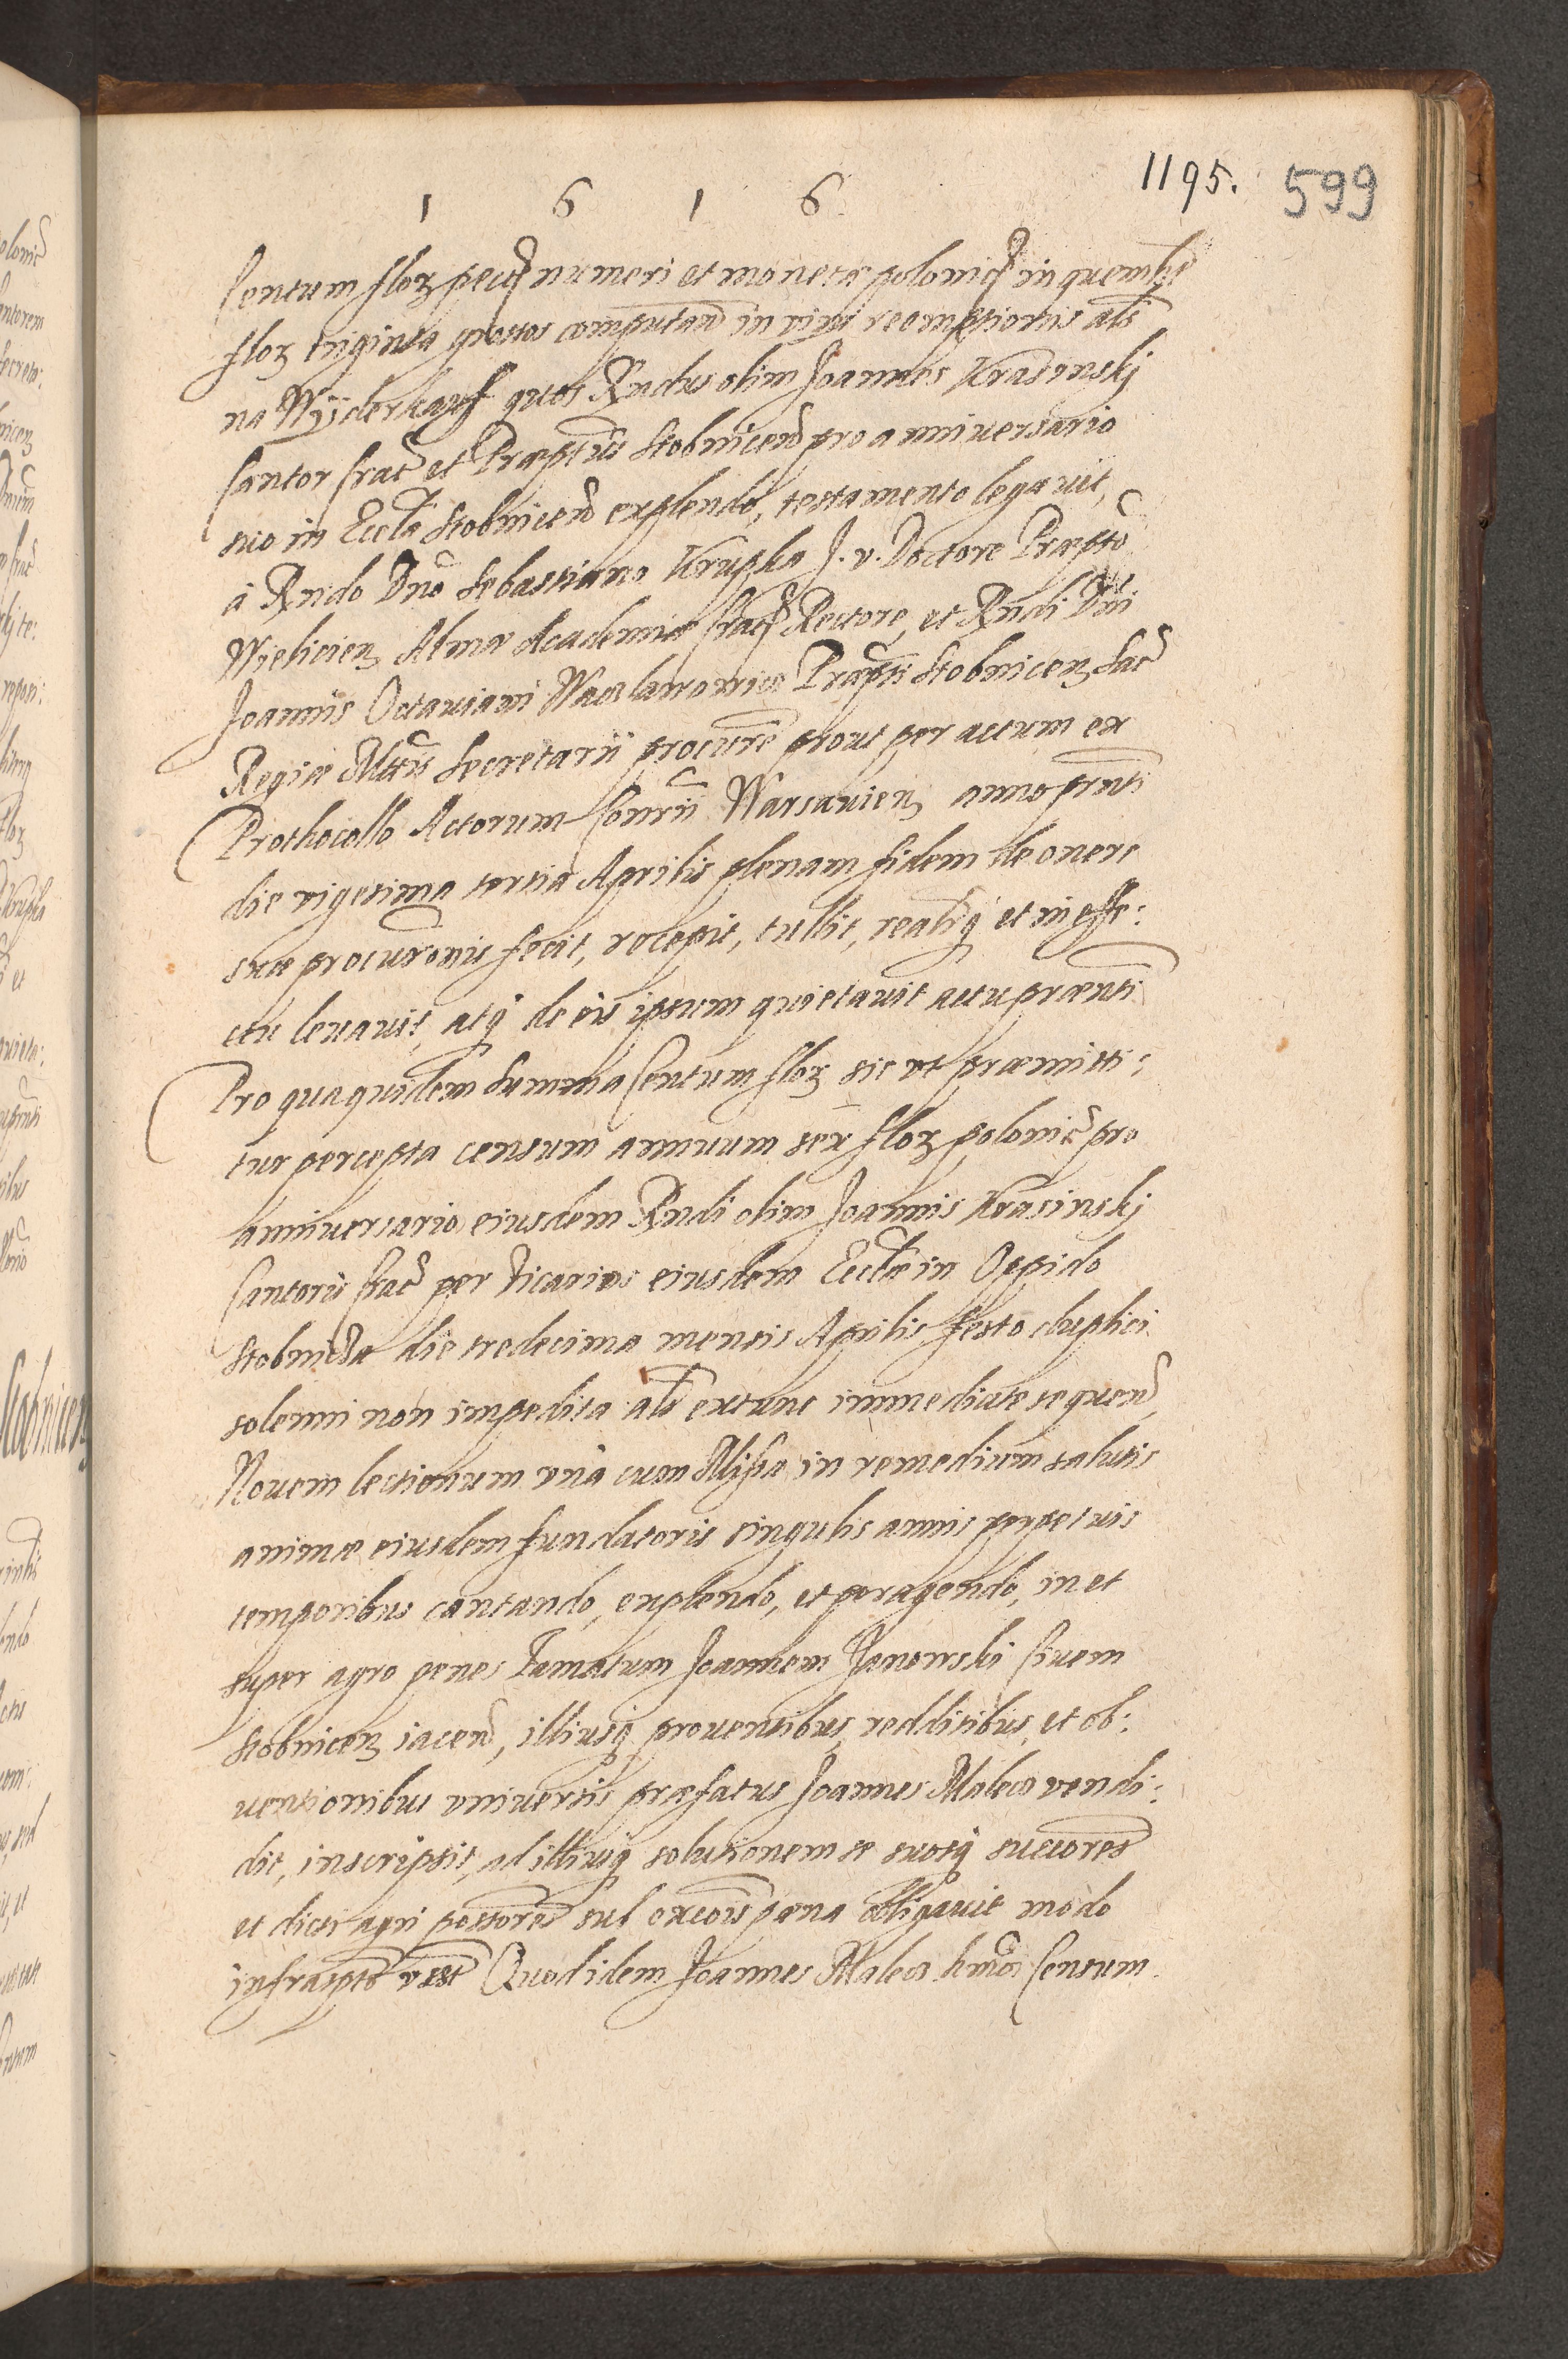 1195. 599
1 6 1 6
Centum floz pecu numeri et monetæ polonic in quemlt
floz triginta grossos computan in vim reemptionis als
na Wÿderkauf quos Rndus olim Joannes Krasinskj
Cantor Crac et Præptus Stobnicen pro anniuersario
suo in Eccla Stobnicen explendo, testamento legauit,
à Rndo Dno Sebastiano Krupka J. v. Doctore Præpto
Wielicien Almæ Academiæ Crac Rectore, et Rndi Dni
Joannis Octauiani Waczlawowicz Præpti Stobnicen Sac
Regiæ Mttis Secretarii procure prout per actum ex
Prothocollo Actorum Consrii Warsauien anno prnti
die vigesima tertia Aprilis plenam fidem de onere
suæ procuronis fecit, recepit, tullit, realrq et in effe:
ctu leuauit, atq de eis ipsum quietauit actu præsnti
Pro qua quidem Summa Centum floz sic vt præmitti:
tur percepta censum annuum sex floz polonic pro
anniuersario eiusdem Rndi olim Joannis Krasinskj
Cantoris Crac per Vicarios eiusdem Ecclæ in Oppido
Stobnicza die tredecima mensis Aprilis festo duplici
solemni non impedita als extunc immediate sequen
Nouem lectionum vnà cum Missa in remedium salutis
animæ eiusdem fundatoris singulis annis perpetuis
temporibus cantando, explendo, et peragendo, in et
super agro penes Famatum Joannem Janowski Ciuem
Stobnicen iacen, illiusq prouentibus, redditibus, et ob:
uentionibus vniuersis præfatus Joannes Malecz vendi:
dit, inscripsit, ad illiusq solutionem se suosq succores
et dicti agri possores sub excois pæna obligauit modo
infrascpto vsst Quod idem Joannes Malecz hmoi Censum